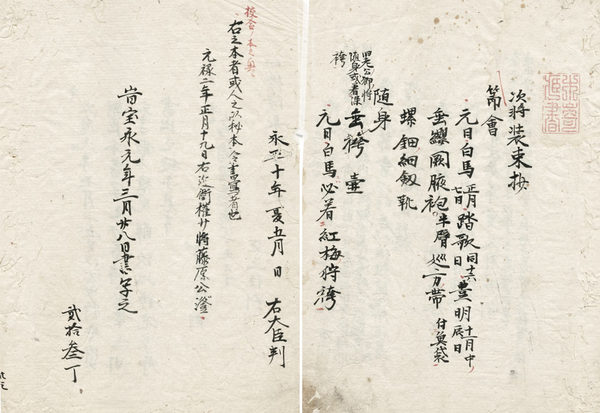 次将装束抄
節會
元日白馬正月七日踏歌同十六日豊明十一月中辰日
垂纓闕腋袍半臂巡方帶付魚袋
螺鈿細釼靴
随身
垂袴壷
元日白馬必着紅梅狩袴
永
十年夏五月日
右大臣判
右之本者或人之以秘本令書写者也
元禄二年正月十九日右近衛権少将藤原公澄
宝永元年三月廿八日書写之
貮拾叁丁